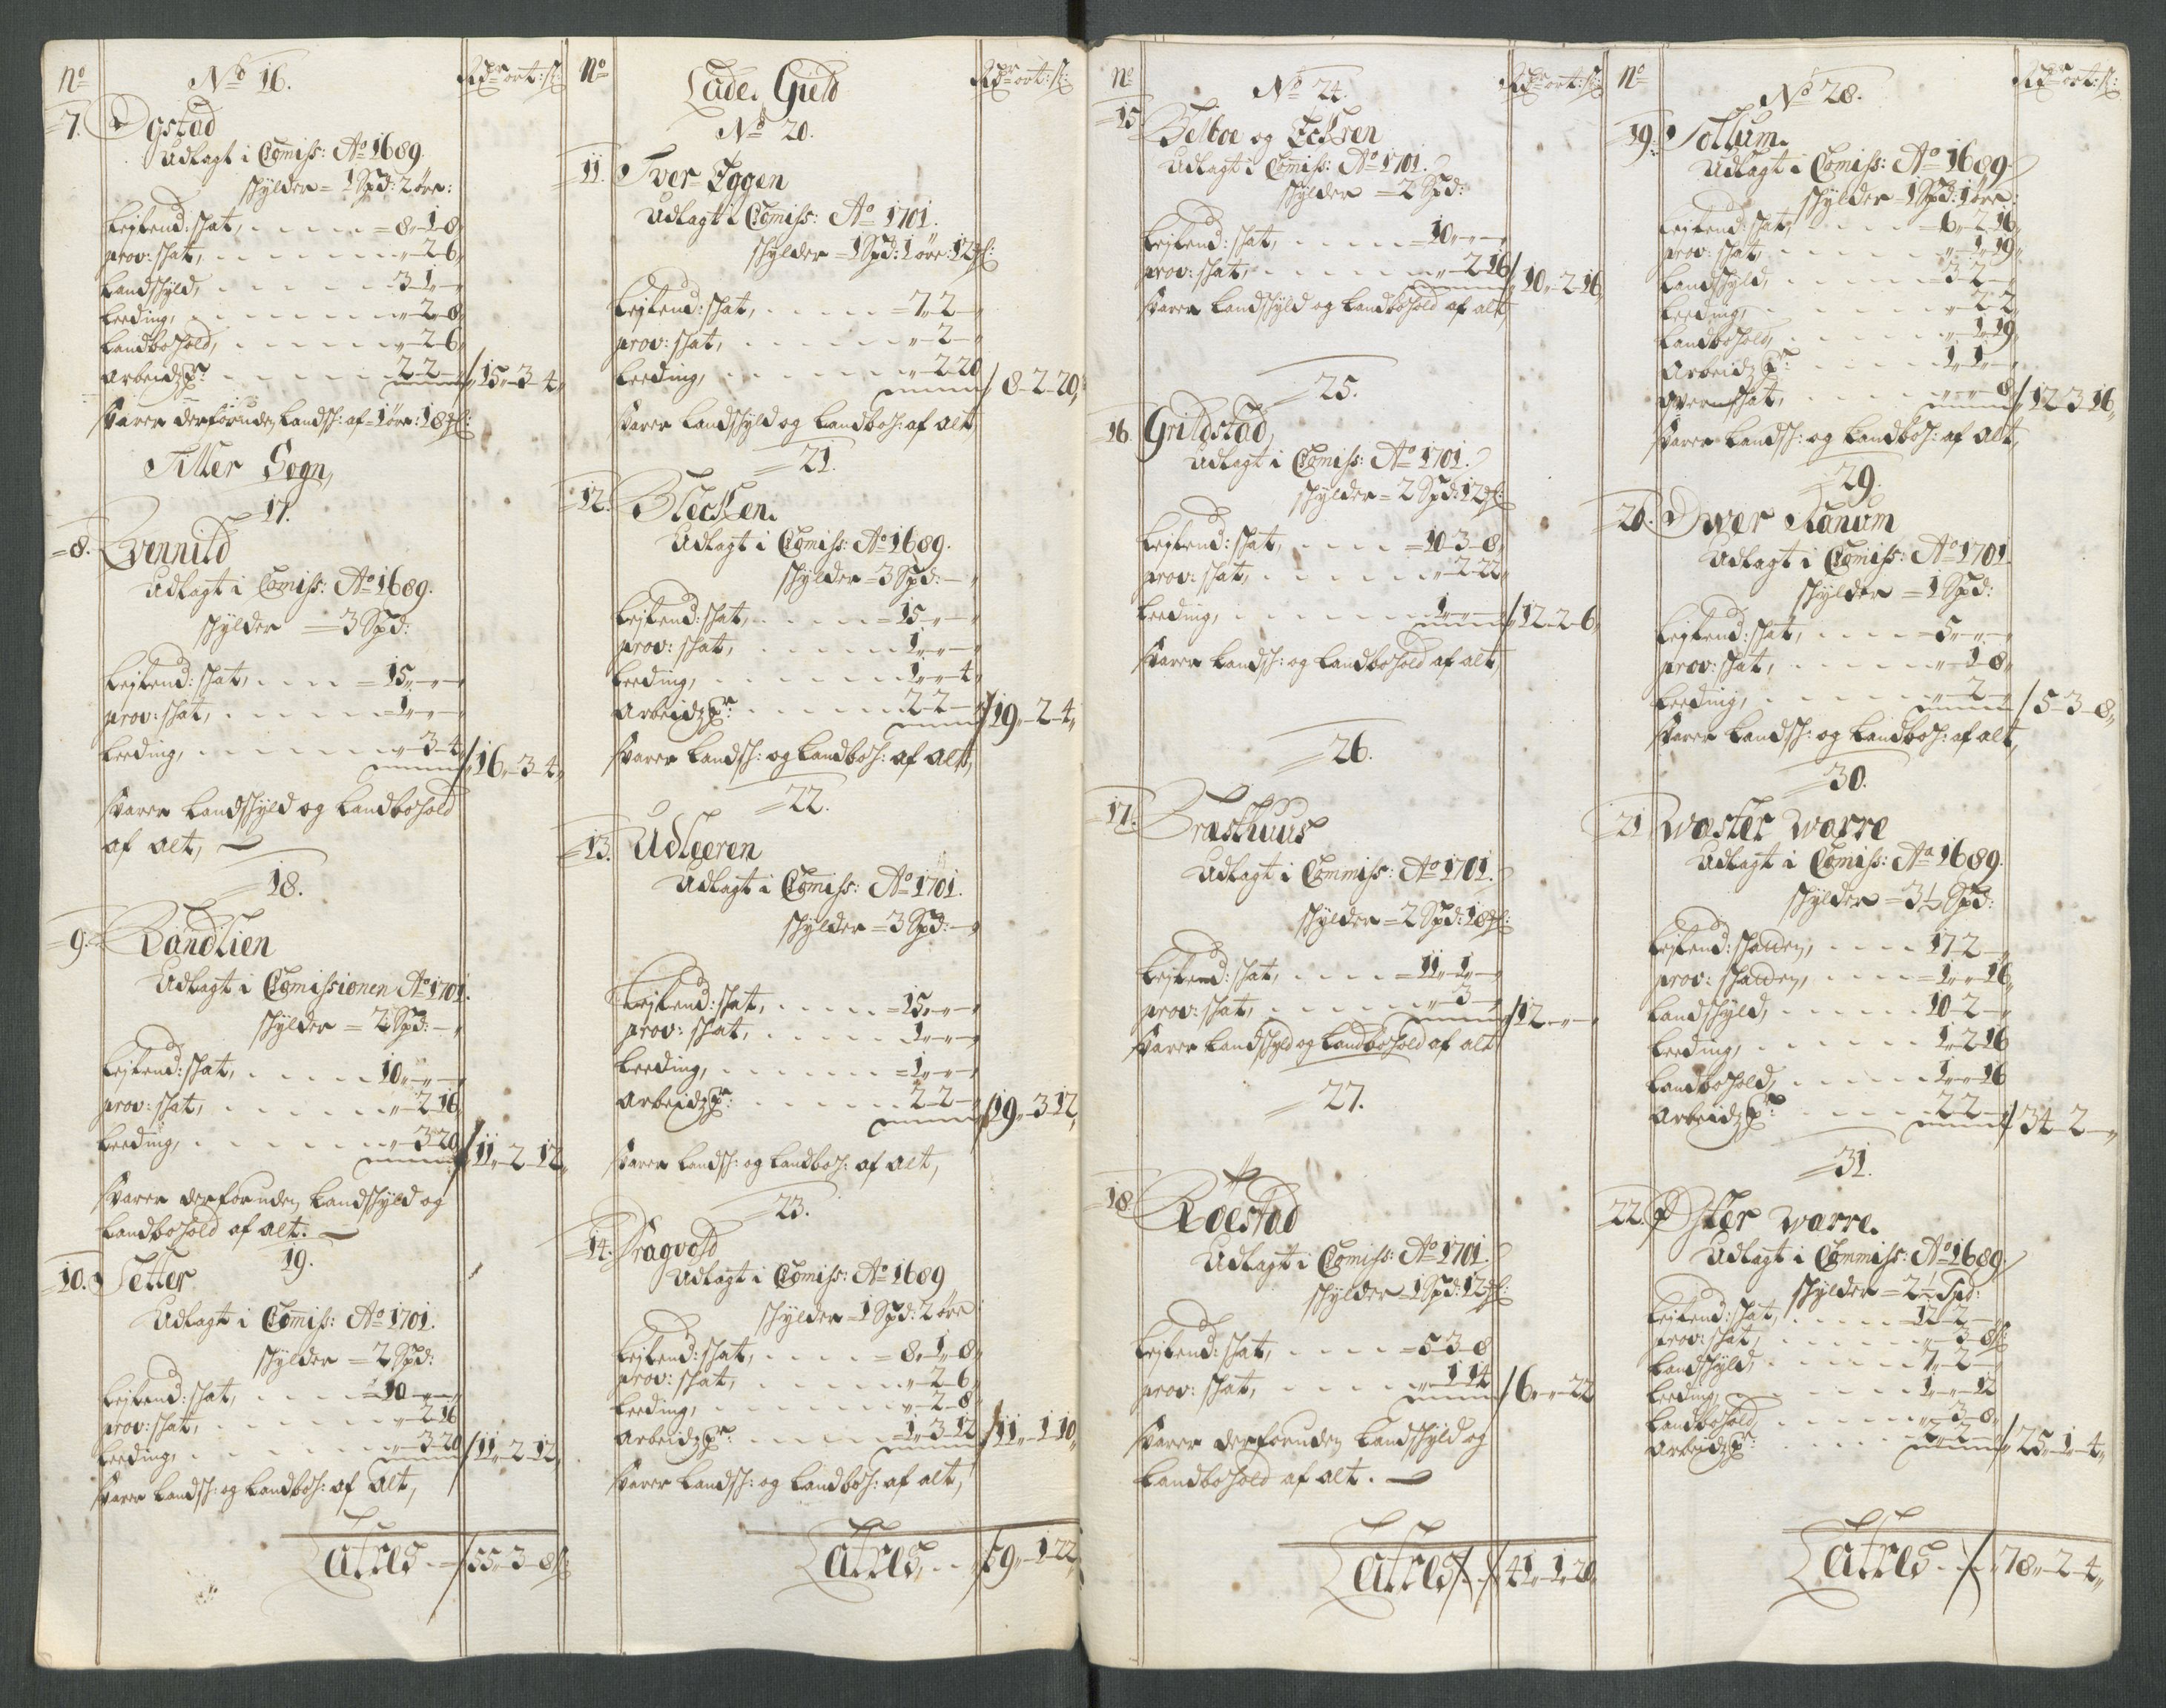 No
No 16.
Rdr ort: s:
7. Ogstad
Udlagt i Comiss: Ao 1689.
skylder = 1 Spd: 2 øre:
Leilend: skat, . . . . = 8 „ 1 „ 8 „
prov: skat, . . . . „ 2 „ 6 „
Landskyld, . . . . 3 „ 1 „ —
Leeding, . . . . „ 2 „ 8 „
Landbohold, . . . . „ 2 „ 6 „
Arbeidz pr: . . . . 2 „ 2 „ — / 15 „ 3 „ 4 „
svarer derforuden Landsk: af 1 øre: 18 ml:
Tiller Sogn,
17.
8. Qvennild
Udlagt i Comiss: Ao 1689.
skylder = 3 Spd:
Leilend: skat, . . . . = 15 „ — „ —
prov: skat, . . . . = 1 „ — „ —
Leeding, . . . . „ 3 „ 4 / 16 „ 3 „ 4 „
svarer Landskyld og Landbohold
af alt, —
18.
9. Randlien
Udlagt i Comissionen Ao 1701.
skylder = 2 Spd: —
Leilend: skat, . . . . 10 „ — „ —
prov: skat, . . . . „ 2 „ 16
Leeding, . . . . „ 3 „ 20 / 11 „ 2 „ 12 „
svarer derforuden Landskyld og
Landbohold af alt. —
19.
10. Setter
Udlagt i Comiss: Ao 1701.
skylder = 2 Spd:
Leilend: skat, . . . . = 10 „ — „ —
prov: skat, . . . . „ 2 „ 16
Leeding, . . . . „ 3 „ 20 / 11 „ 2 „ 12 „
svarer Landsk: og Landboh: af alt,
Latres . — / 55 „ 3 „ 8 s:
No
Lade Gield
Rdr ort: s:
No 20.
11. Tver Eggen
Udlagt i Comiss: Ao 1701.
skylder = 1 Spd: 1 øre: 12 ml:
Leilend: skat, . . . . = 7 „ 2 „ —
prov: skat, . . . . „ 2 „ —
Leeding, . . . . „ 2 „ 20 / 8 „ 2 „ 20 „
svarer Landskyld og Landboh: af alt
21.
12. Blecken.
Udlagt i Comiss: Ao 1689.
skylder = 3 Spd: —
Leilend: skat, . . . . = 15 „ — „ —
prov: skat, . . . . 1 „ — „ —
Leeding, . . . . 1 „ — „ 4
Arbeidz pr: . . . . 2 „ 2 „ — / 19 „ 2 „ 4 „
svarer Landsk: og Landboh: af alt,
22.
13. Udleeren
Udlagt i Comiss: Ao 1701.
skylder = 3 Spd: —
Leilend: skat, . . . . = 15 „ — „ —
prov: skat, . . . . 1 „ — „ —
Leeding, . . . . = 1 „ — „ —
Arbeidz pr: . . . . 2 „ 2 „ — / 19 „ 3 „ 12 „
svarer Landsk: og Landboh: af alt,
23.
14. Dragvold
Udlagt i Comiss: Ao 1689
skylder = 1 Spd: 2 øre:
Leilend: skat, . . . . = 8 „ 1 „ 8 „
prov: skat, . . . . „ 2 „ 6 „
Leeding, . . . . „ 2 „ 8 „
Arbeidz pr: . . . . = 1 „ 3 „ 12 / 11 „ 1 „ 10 „
svarer Landsk: og Landboh: af alt,
Latres, . . / 59 „ 1 „ 22
No
No 24.
Rdr ort: s:
15. Belboe og Eckren
Udlagt i Comiss: Ao 1701.
skylder = 2 Spd:
Leilend: skat, . . . . = 10 „ — „ —
prov: skat, . . . . „ 2 „ 16 / 10 „ 2 „ 16 „
svarer Landskyld og Landbohold af alt
25.
16. Grildstad
Udlagt i Comiss: Ao 1701.
skylder = 2 Spd: 12 ml:
Leilend: skat, . . . . = 10 „ 3 „ 8 „
prov: skat, . . . . „ 2 „ 22 „
Leeding, . . . . 1 „ — „ — / 12 „ 2 „ 6 „
svarer Landsk: og Landbohold af alt,
26.
17. Præsthuus
Udlagt i Commiss: Ao 1701.
skylder = 2 Spd: 18 ml:
Leilend: skat, . . . . = 11 „ 1 „ —
prov: skat, . . . . „ 3 „ — / 12 „ — „ —
svarer Landskyld og Landbohold af alt
27.
18. Roestad
Udlagt i Comiss: Ao 1701.
skylder = 1 Spd: 12 ml:
Leilend: skat, . . . . = 5 „ 3 „ 8
prov: skat, . . . . „ 1 „ 14 / 6 „ — „ 22
svarer derforuden Landskyld og
Landbohold af alt. —
Latres / 41 „ 1 „ 20 „
No
No 28.
Rdr ort: s:
19. Sollum.
Udlagt i Comiss: Ao 1689.
skylder = 1 Spd: 1 øre:
Leilend: skat, . . . . = 6 „ 2 „ 16 „
prov: skat, . . . . „ 1 „ 19 „
Landskyld, . . . . = 3 „ 2 „ —
Leeding, . . . . „ 2 „ 2 „
Landbohold, . . . . „ 1 „ 19
Arbeidz pr: . . . . 1 „ 1 „ —
qvernskat, . . . . „ — „ 8 / 12 „ 3 „ 16 „
svarer Landsk: og Landboh: af alt,
29.
20. Over Ranum
Udlagt i Comiss: Ao 1701.
skylder = 1 Spd:
Leilend: skat, . . . . = 5 „ — „ —
prov: skat, . . . . „ 1 „ 8 „
Leeding, . . . . „ 2 „ — / 5 „ 3 „ 8 „
svarer Landsk: og Landboh: af alt,
30.
21 Wæster Warre
Udlagt i Comiss: Ao 1689.
skylder = 3 1/2 Spd:
Leilend: skatten, . . . . 17 „ 2 „ —
prov: skatten, . . . . = 1 „ — „ 16 „
Landskyld, . . . . 10 „ 2 „ —
Leeding, . . . . 1 „ 2 „ 16
Landbohold, . . . . 1 „ — „ 16
Arbeidz pr: . . . . 2 „ 2 „ — / 34 „ 2 „ —
31.
22. Øster Warre.
Udlagt i Commiss: Ao 1689.
skylder = 2 1/2 Spd:
Leilend: skat, . . . . = 12 „ 2 „ —
prov: skat, . . . . „ 3 „ 8 s:
Landskyld, . . . . 7 „ 2 „ —
Leeding, . . . . 1 „ — „ 12
Landbohold, . . . . „ 3 „ 8 „
Arbeidz pr: . . . . 2 „ 2 „ — / 25 „ 1 „ 4 „
Latres . . / 78 „ 2 „ 4 „